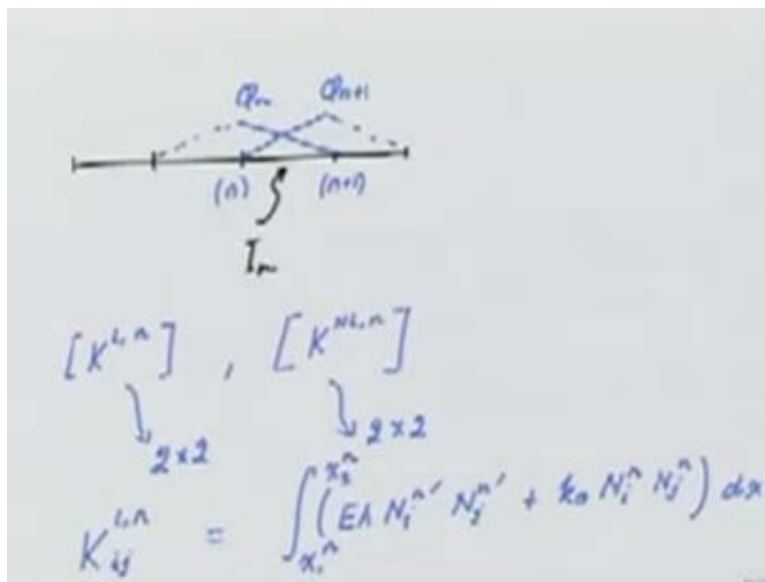 φn φn+1
(n) (n+1)
In
[K^{L,n}] , [K^{NL,n}]
2×2 2×2
K_{ij}^{L,n} = ∫_{x_1^n}^{x_2^n} (EA N_i^{n'} N_j^{n'} + k_0 N_i^n N_j^n) dx